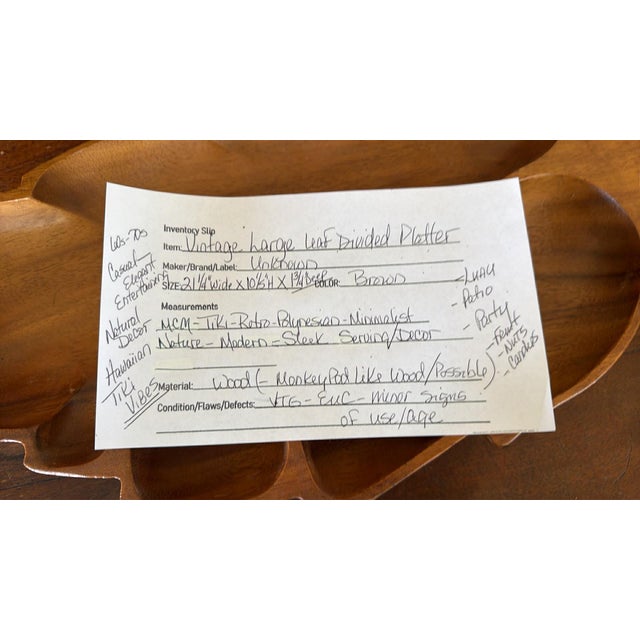 Inventory Slip
Item: Vintage Large Leaf Divided Platter
Maker/Brand/Label: Unknown
SIZE: 21 1/4" Wide X 10 1/2" H X 1 3/4 Deep COLOR: Brown
Measurements
MCM-Tiki-Retro-Polynesian-Minimalist
Nature-Modern-Sleek Serving/Decor
Material: Wood (-MonkeyPod Like Wood/Possible)
Condition/Flaws/Defects: VTG-EUC-minor signs
of use/age
60s-70s
Casual
Elegant
Entertaining
Natural
Decor
Hawaiian
Tiki
Vibes
-LUAU
-Patio
-Party
-Fruit
-Nuts
-Candies